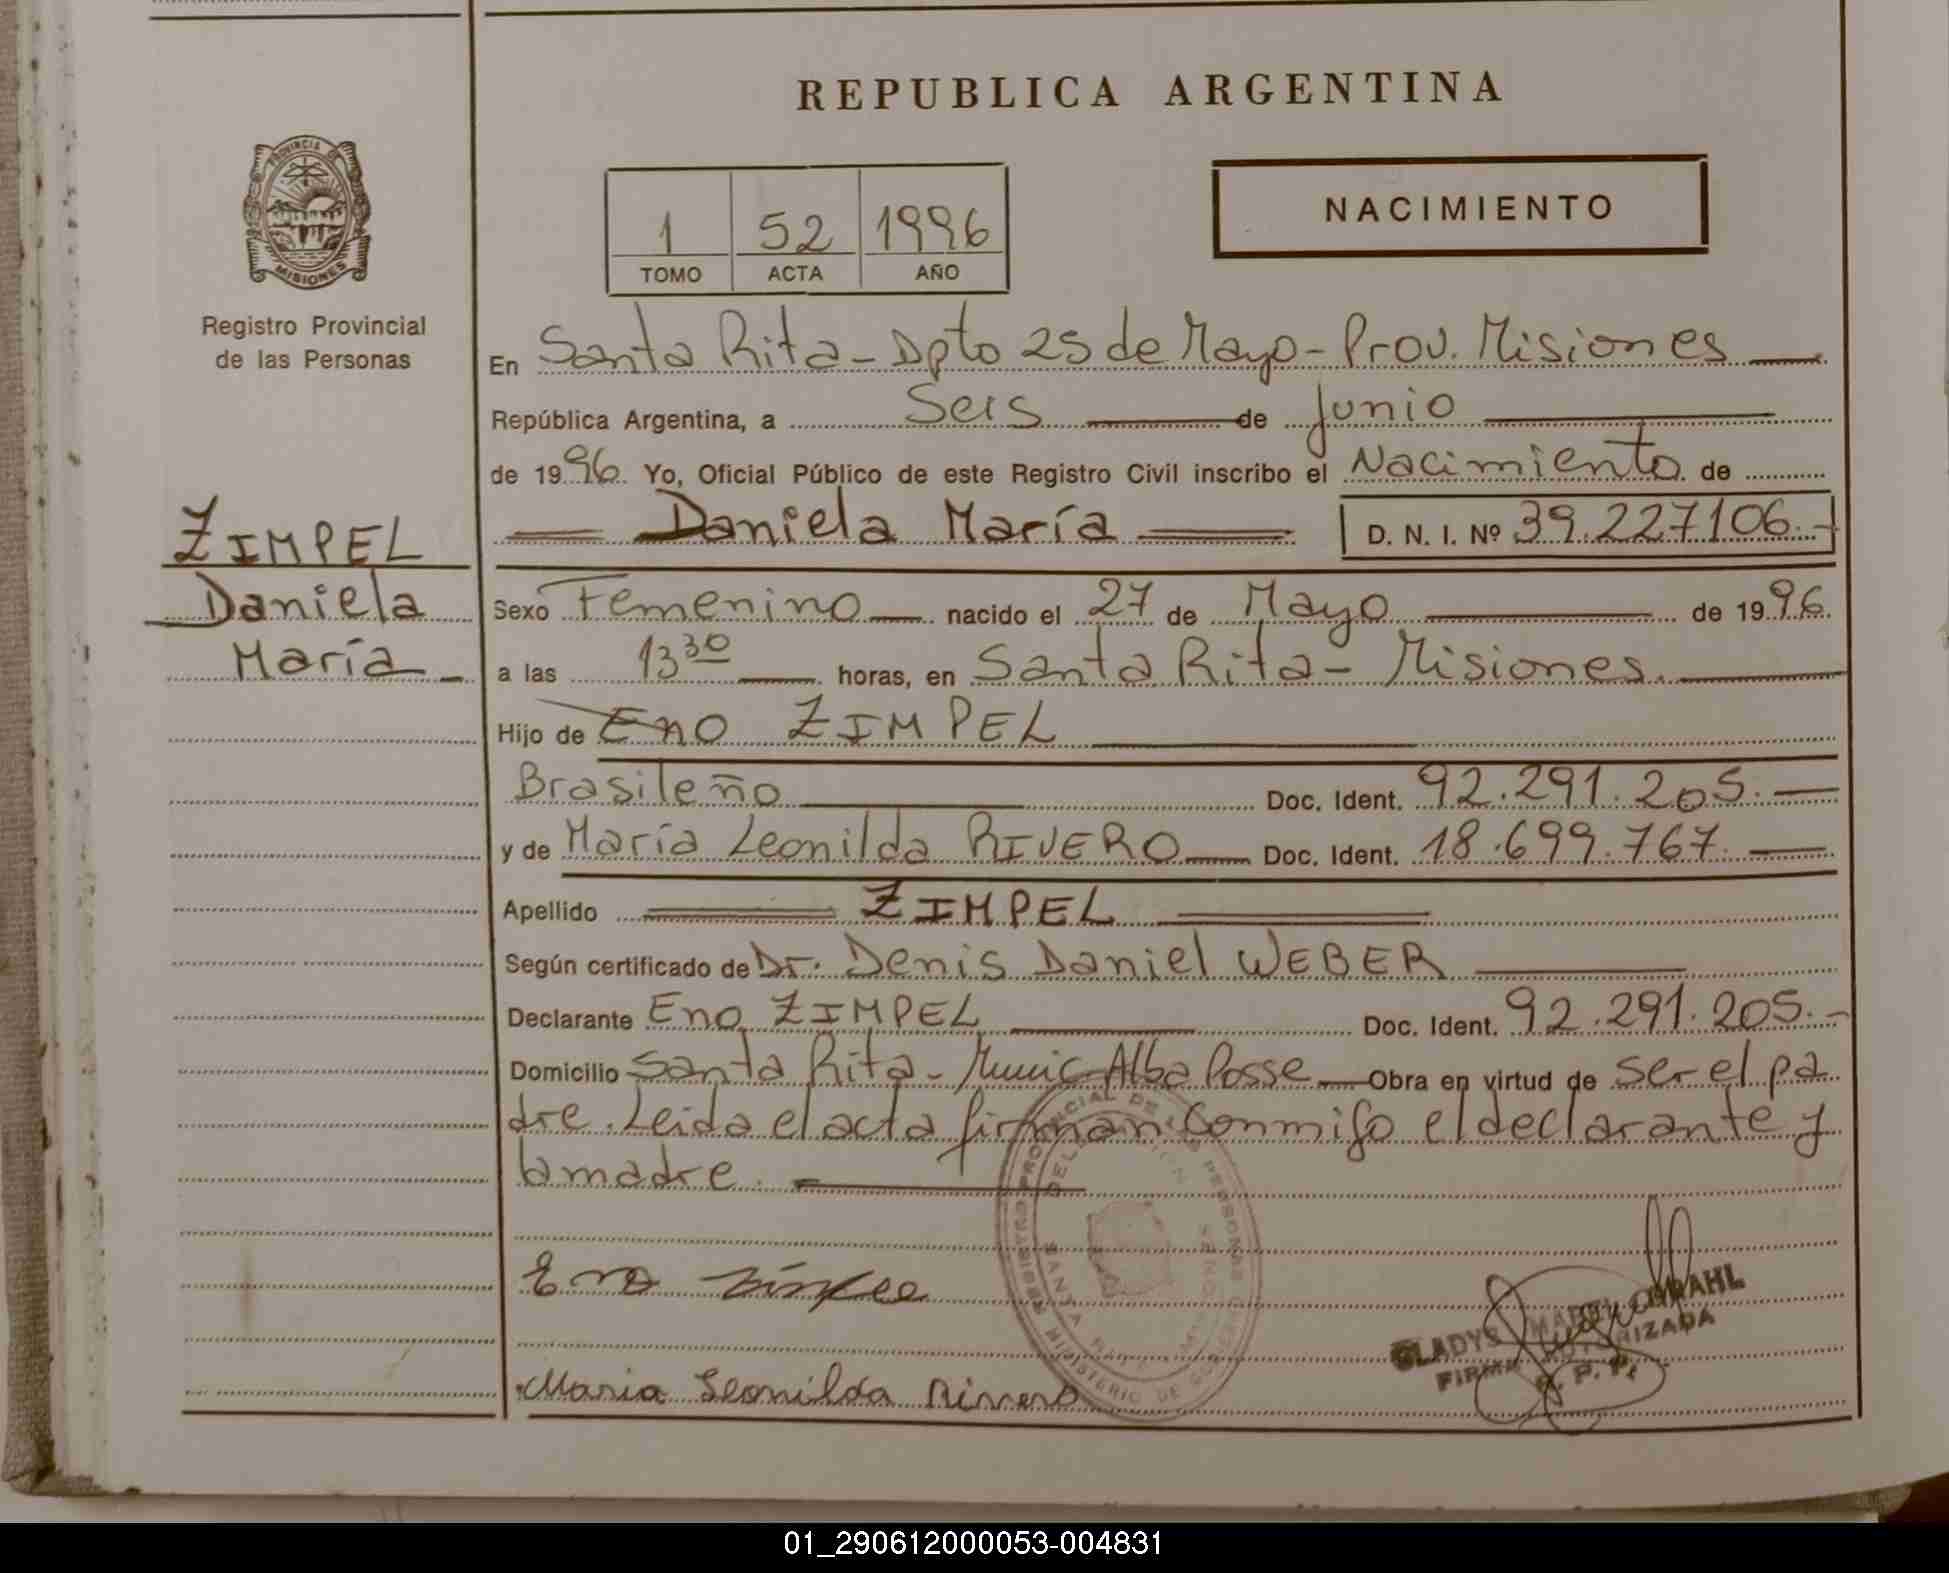 REPUBLICA ARGENTINA
PROVINCIA DE
MISIONES
Registro Provincial
de las Personas
1 52 1996
TOMO ACTA AÑO
NACIMIENTO
En Santa Rita - Dpto 25 de Mayo - Prov. Misiones
República Argentina, a Seis de Junio
de 1996. Yo, Oficial Público de este Registro Civil inscribo el Nacimiento de
Daniela María D. N. I. Nº 39.227106.-
ZIMPEL
Daniela
María
Sexo Femenino nacido el 27 de Mayo de 1996.
a las 13 30 horas, en Santa Rita - Misiones.
Hijo de Eno ZIMPEL
Brasileño Doc. Ident. 92.291.205.
y de María Leonilda RIVERO Doc. Ident. 18.699.767.
Apellido ZIMPEL
Según certificado de Dr. Denis Daniel WEBER
Declarante Eno ZIMPEL Doc. Ident. 92.291.205.-
Domicilio Santa Rita - Munic. Alba Posse Obra en virtud de ser el pa
dre. Leida el acta firman conmigo el declarante y
la madre.
REGISTRO PROVINCIAL DE LAS PERSONAS
MINISTERIO DE GOBIERNO
SANTA RITA
Eno
Maria Leonilda Rivero
GLADYS MABEL
FIRMA AUTORIZADA
R. P. P.
01_290612000053-004831